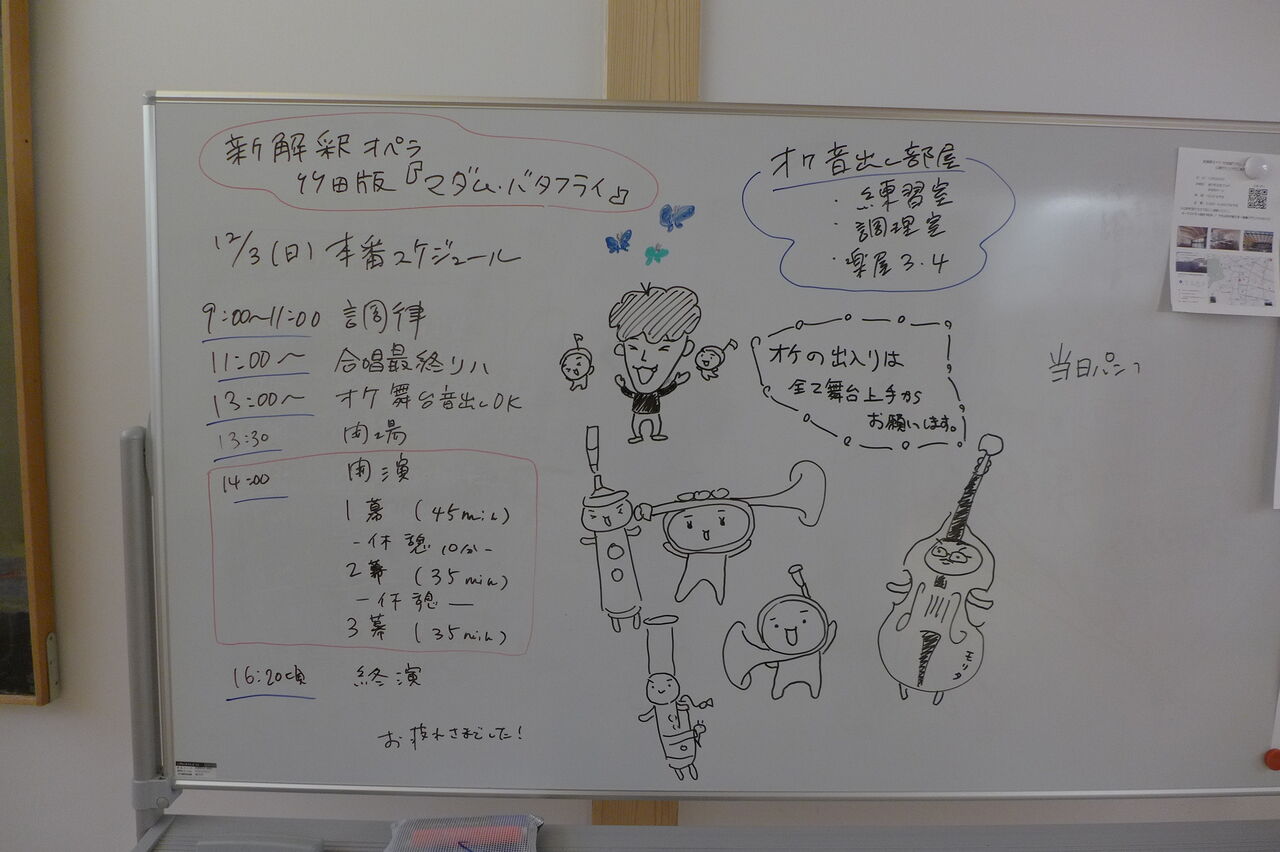 新解釈オペラ
竹田版『マダム・バタフライ』
12/3(日) 本番スケジュール
9:00〜11:00 調律
11:00〜 合唱最終リハ
13:00〜 オケ舞台音出しOK
13:30 開場
14:00 開演
1幕 (45min)
-休憩10分-
2幕 (35min)
-休憩-
3幕 (35min)
16:20頃 終演
お疲れさまでした!
オケ音出し部屋
・練習室
・調理室
・楽屋3.4
オケの出入りは
全て舞台上手から
お願いします。
モリタ
当日パンフ